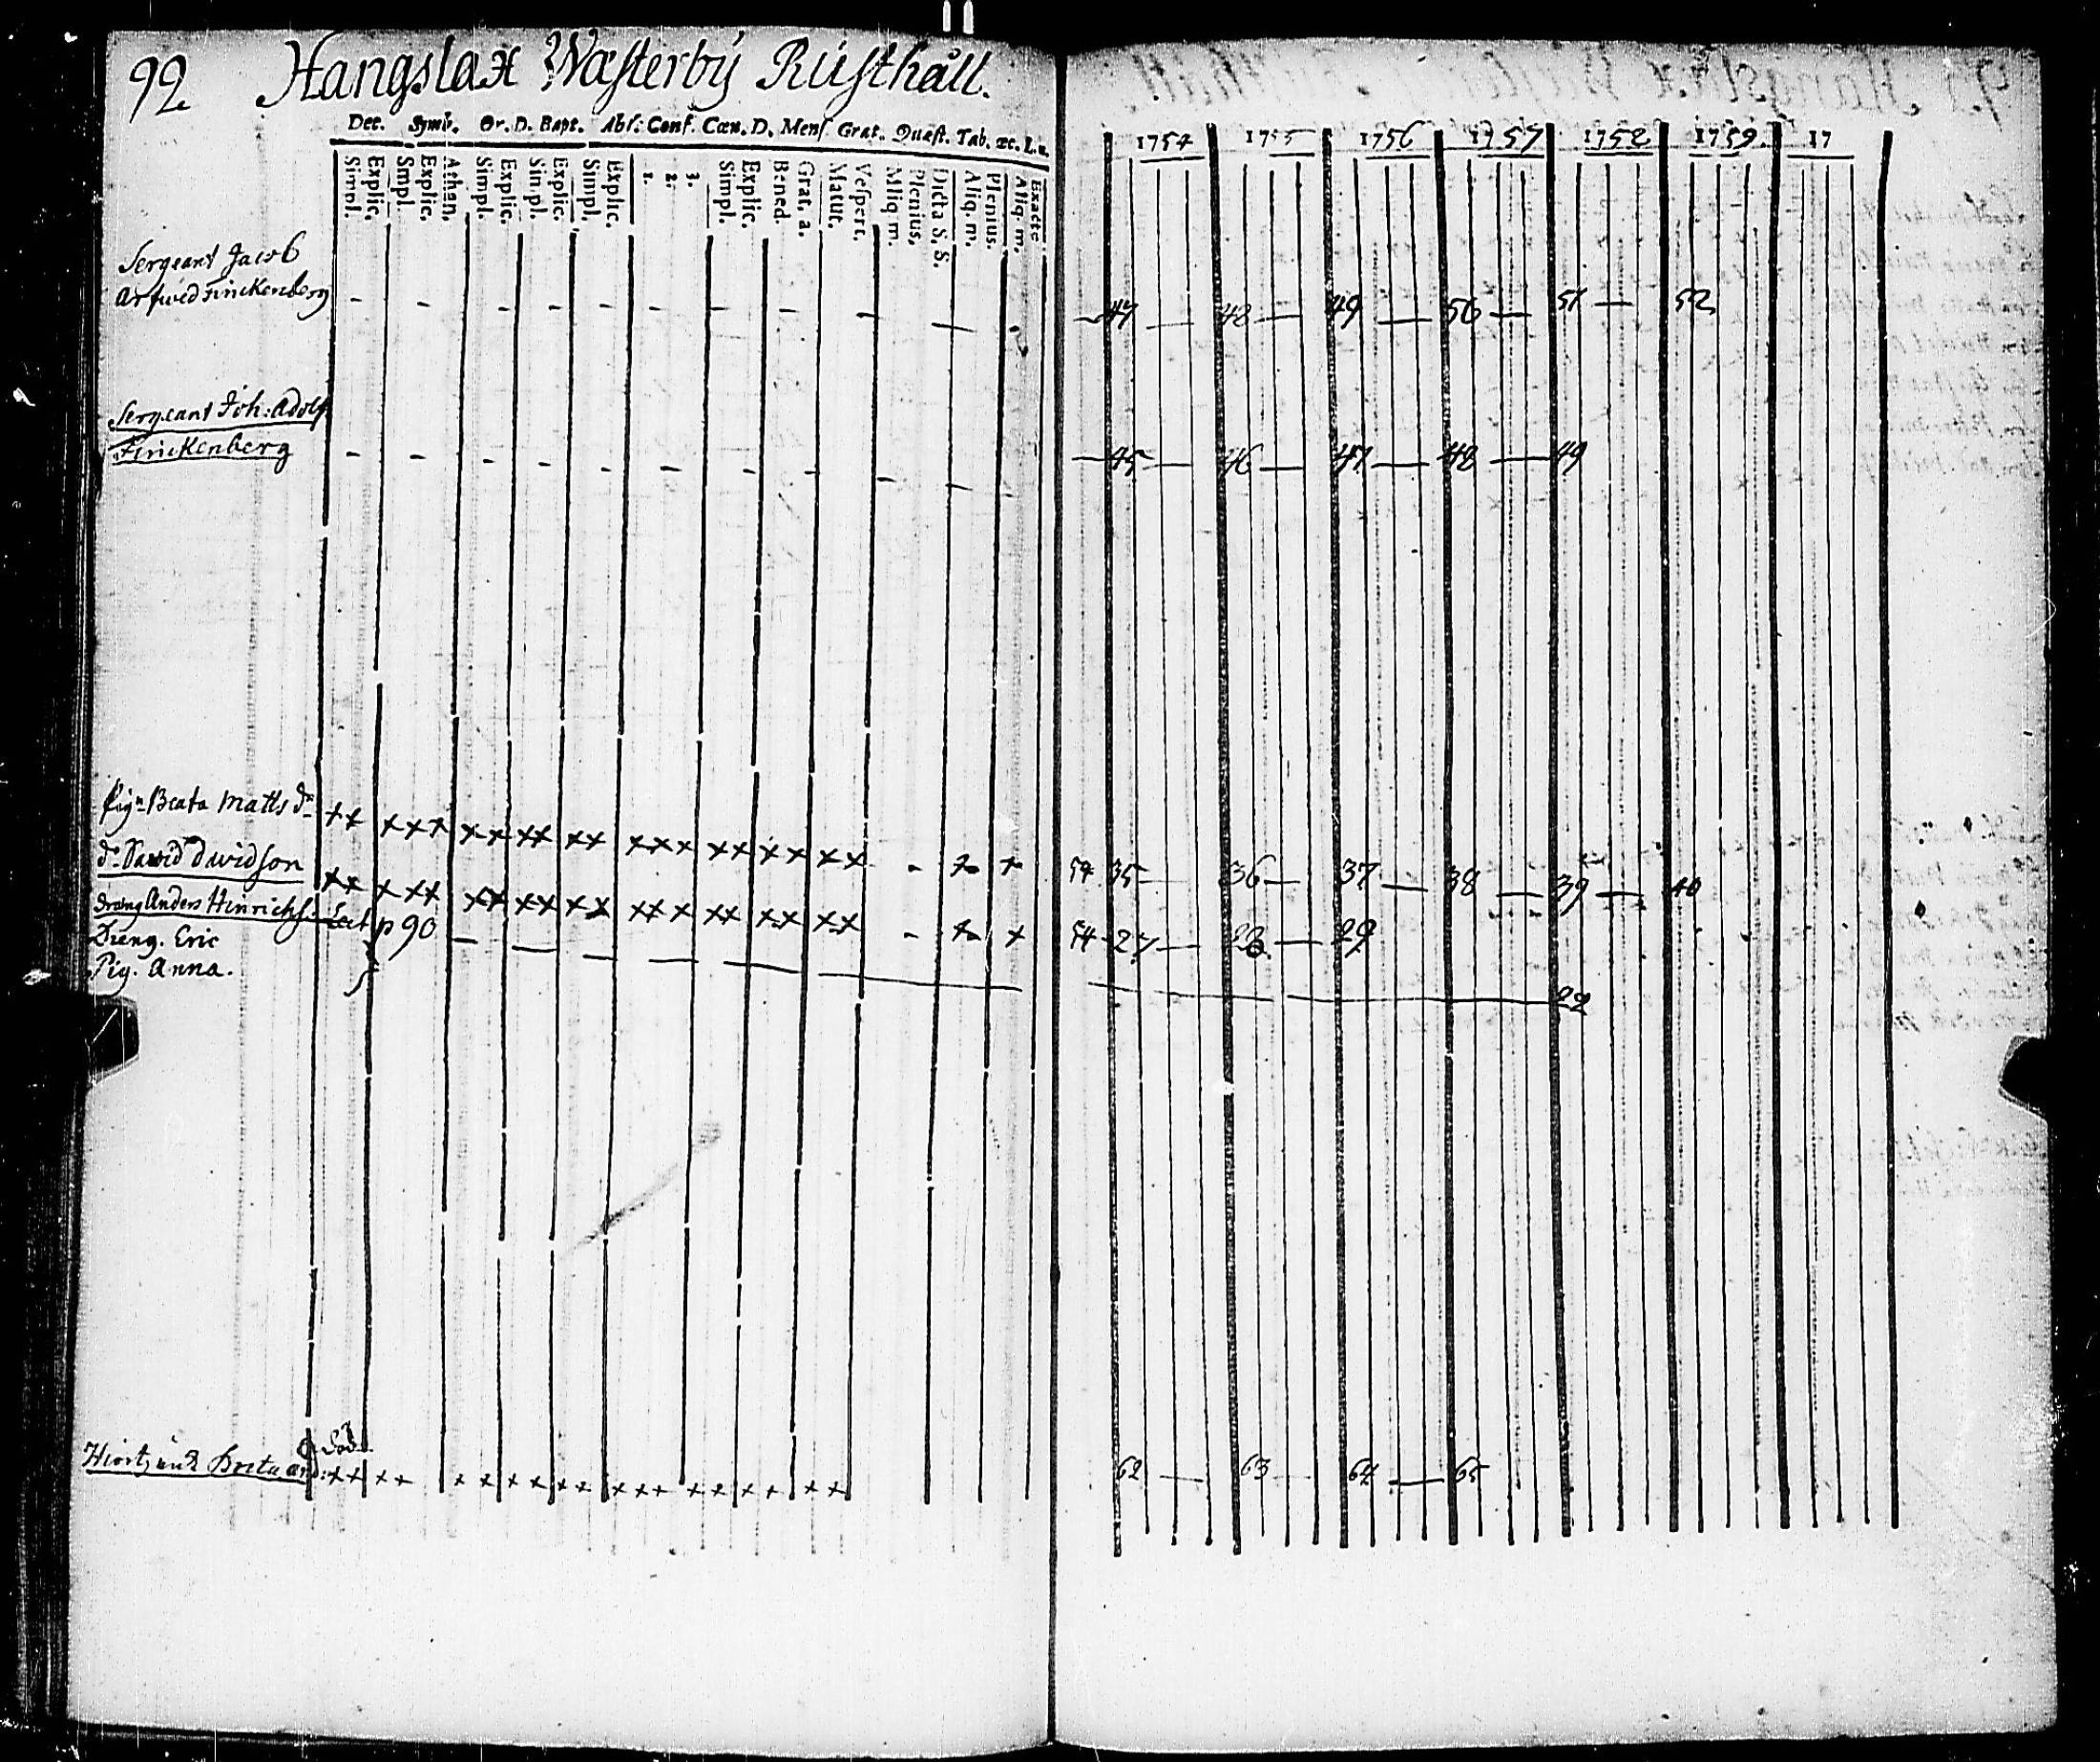 92 Hangslax Wästerbÿ Rüsthåll.
Dec. Symb. Or. D. Bapt. Abs: Conf. Cœn. D. Mens. Grat. Quæst. Tab. œc. L.u.
Simpl. Explic. Smpl. Explic. Athan. Simpl. Explic. Simpl. Explic. Simpl. Explic. 1. 2. 3. Simpl. Explic. Bened. Grat. a. Matut. Vespert. Aliq m. Plenius. Dicta S. S. Aliq. m. Plenius. Aliq. m. Exacte
1754 1755 1756 1757 1758 1759. 17
Sergeant Jacob
Arfwed Finckenberg - - - - - - - - - - 47 — 48 — 49 — 50 — 51 — 52
Sergeant Joh: Adolf
Finckenberg - - - - - - - - - - - — 45 — 46 — 47 — 48 — 49
Pign Beata Matts dr ++ +++ ++ ++ ++ +++ ++ ++ ++ - + + 54 35 — 36 — 37 — 38 — 39 — 40
dr David Davidson ++ +++ ++ ++ ++ +++ ++ ++ ++ - + + 54 27 — 28 — 29
dräng Anders Hinrichs: p 90
Dreng. Eric
Pig. Anna. 22
död
Hiort Greta And: ++ ++ ++ ++ ++ +++ ++ ++ ++ 62 — 63 — 64 — 65